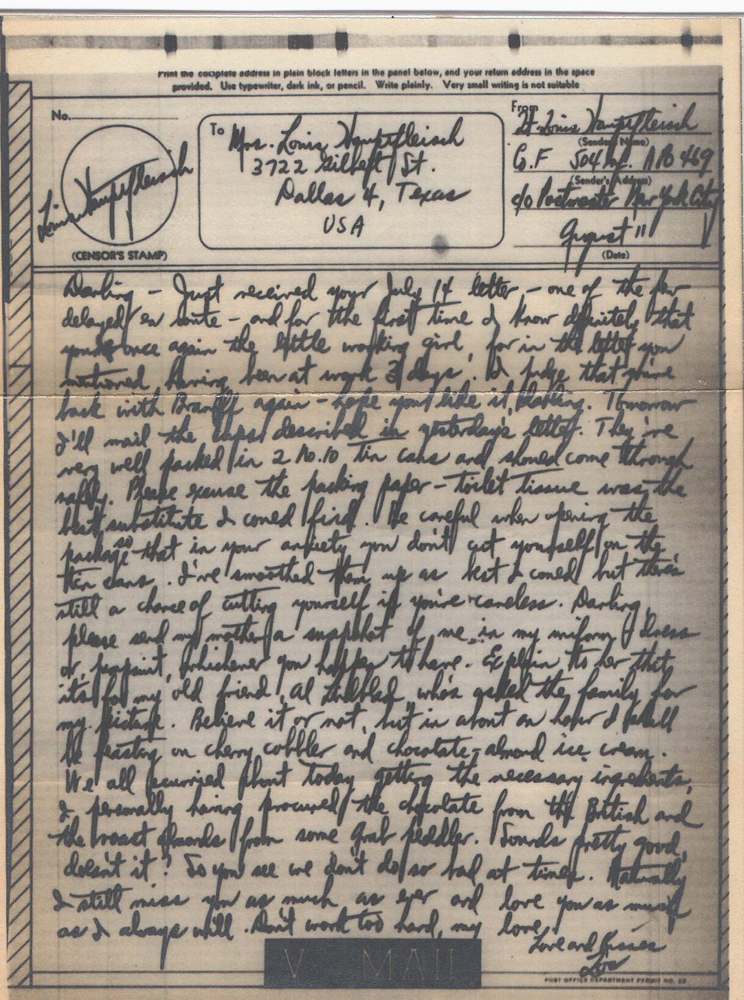 Print the complete address in plain block letters in the panel below, and your return address in the space
provided. Use typewriter, dark ink, or pencil. Write plainly. Very small writing is not suitable
No.
Louis Hampfleisch
(CENSOR'S STAMP)
To
Mrs. Louis Hampfleisch
3722 Gilbert St.
Dallas 4, Texas
USA
From
Lt. Louis Hampfleisch
(Sender's Name)
G.F 504 APO 469
(Sender's Address)
c/o Postmaster New York City
August 11
(Date)
Darling – Just received your July 14 letter – one of the few
delayed en route – and for the first time I know definitely that
you're once again the little working girl, for in the letter you
mentioned having been at work 3 days. I judge that you're
back with Braniff again – hope you like it, darling. Tomorrow
I'll mail the described in yesterday's letter. They're
very well packed in 2 No. 10 tin cans and should come through
safely. Please excuse the packing paper – toilet tissue was the
best substitute I could find. Be careful when opening the
package so that in your anxiety you don't cut yourself on the
tin cans. I've smoothed them up as best I could but there's
still a chance of cutting yourself if you're careless. Darling,
please send my mother a snapshot of me in my uniform, dress
or pinpoint, whichever you happen to have. Explain to her that
it's for my old friend, Al who's asked the family for
my picture. Believe it or not, but in about an hour I shall
be feasting on cherry cobbler and chocolate-almond ice cream.
We all scurried about today getting the necessary ingredients,
I personally having procured the chocolate from the British and
the roast almonds from some Arab peddler. Sounds pretty good,
doesn't it? So you see we don't do so bad at times. Naturally
I still miss you as much as ever and love you as much
as I always will. Don't work too hard, my love.
Love and Kisses
Lou
V···—MAIL
POST OFFICE DEPARTMENT PERMIT NO. 28